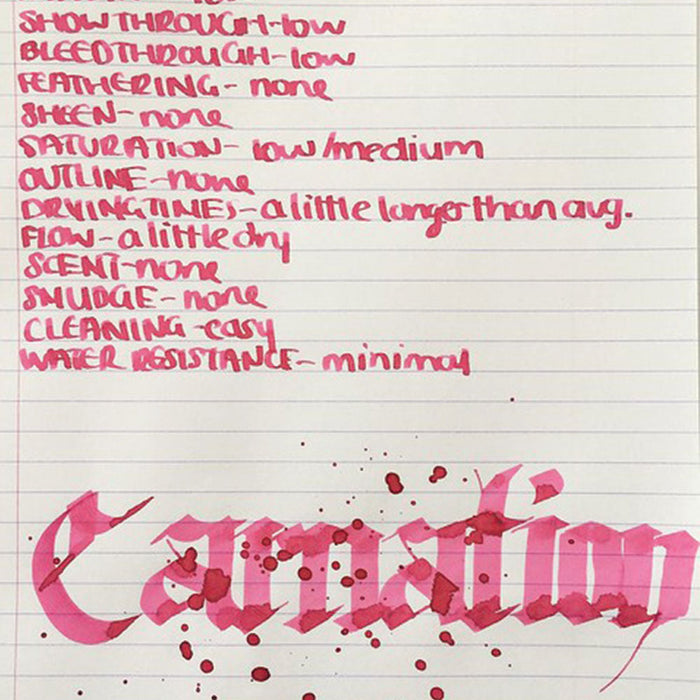 SHOWTHROUGH-low
BLEEDTHROUGH-low
FEATHERING- none
SHEEN-none
SATURATION- low/medium
OUTLINE-none
DRYING TIME;-a little longer than avg.
FLOW-a little dry
SCENT-none
SMUDGE-none
CLEANING-easy
WATER RESISTANCE-minimal
Carnation